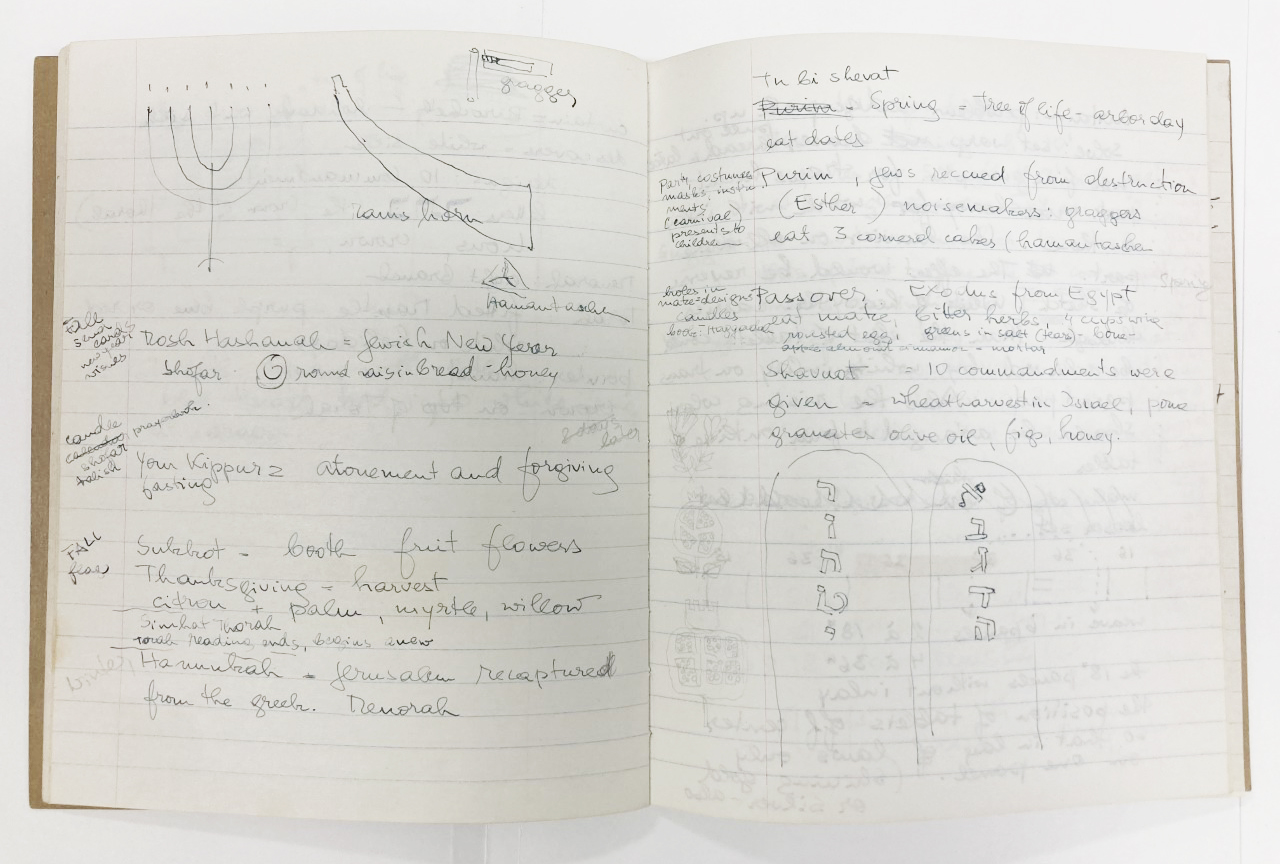 gragger
rams horn
Hamantaschen
FALL
send
cards
new year
wishes
Rosh Hashanah = Jewish New Year
Shofar round raisin bread - honey
8 days
later
candle
pray
shofar
talish
Yom Kippur = atonement and forgiving
fasting
FALL
Sukkot - booth fruit flowers
Thanksgiving = harvest
citron + palm, myrtle, willow
Simhat Thorah
Torah reading ends, begins anew
Hannukah = Jerusalem recaptured
from the greek. Menorah
Tu bi shevat
Purim - Spring = tree of life - arbor day
eat dates
Party costumes
masks, instru-
ments
(carnival)
presents to
children
Purim, Jews rescued from destruction
(Esther) noisemakers: graggers
eat 3 cornerd cakes (hamantaschen
holes in
matze = designs
candles
book: Hagadah
Passover: Exodus from Egypt
eat matze, bitter herbs, 4 cups wine
roasted egg, greens in salt (tears) - bone -
apple almond = mortar
Shavuot = 10 commandments were
given - wheatharvest in Israel, pome
granates olive oil, figs, honey.
ו א
ז ב
ח ג
ט ד
י ה